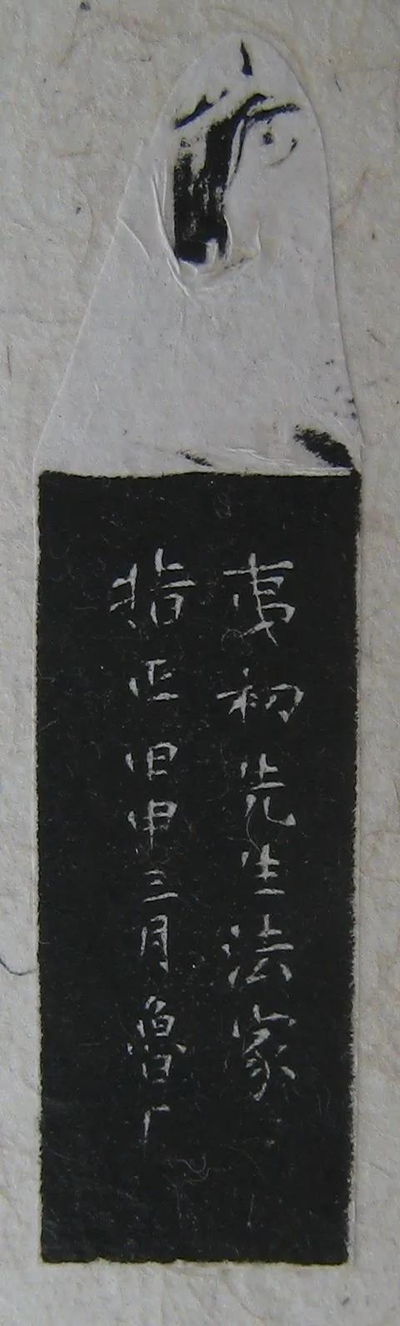 夷初先生法家
指正甲申三月魯厂